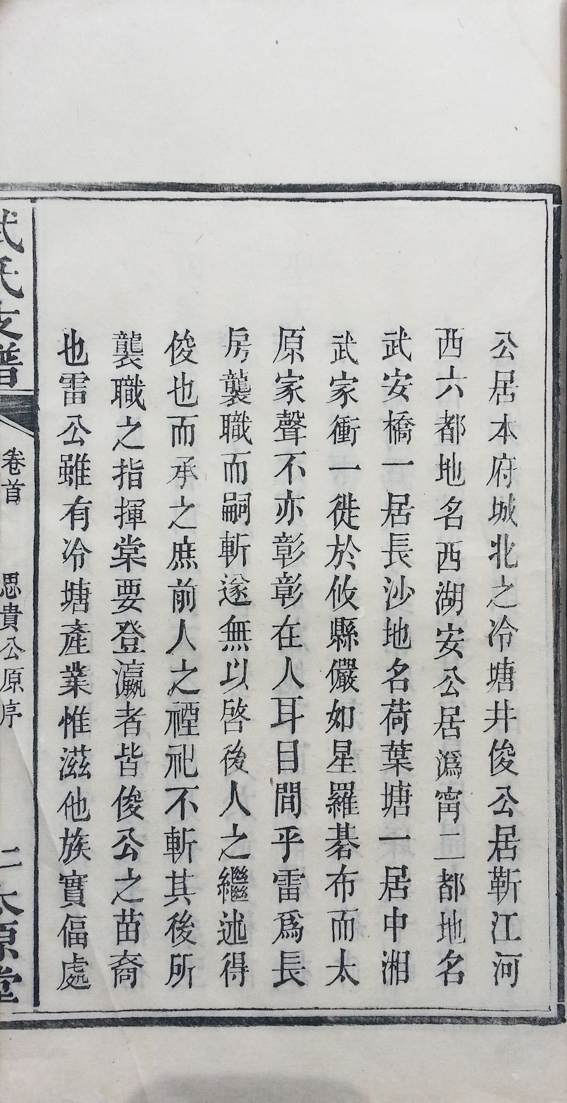 公居本府城北之冷塘井俊公居靳江河
西六都地名西湖安公居溈甯二都地名
武安橋一居長沙地名荷葉塘一居中湘
武家衝一徙於攸縣儼如星羅碁布而太
原家聲不亦彰彰在人耳目間乎雷爲長
房襲職而嗣斬遂無以啓後人之繼述得
俊也而承之庶前人之禋祀不斬其後所
襲職之指揮棠要登瀛者皆俊公之苗裔
也雷公雖有冷塘產業惟滋他族實偪處
武氏支譜
卷首
思貴公原序
二
太原堂